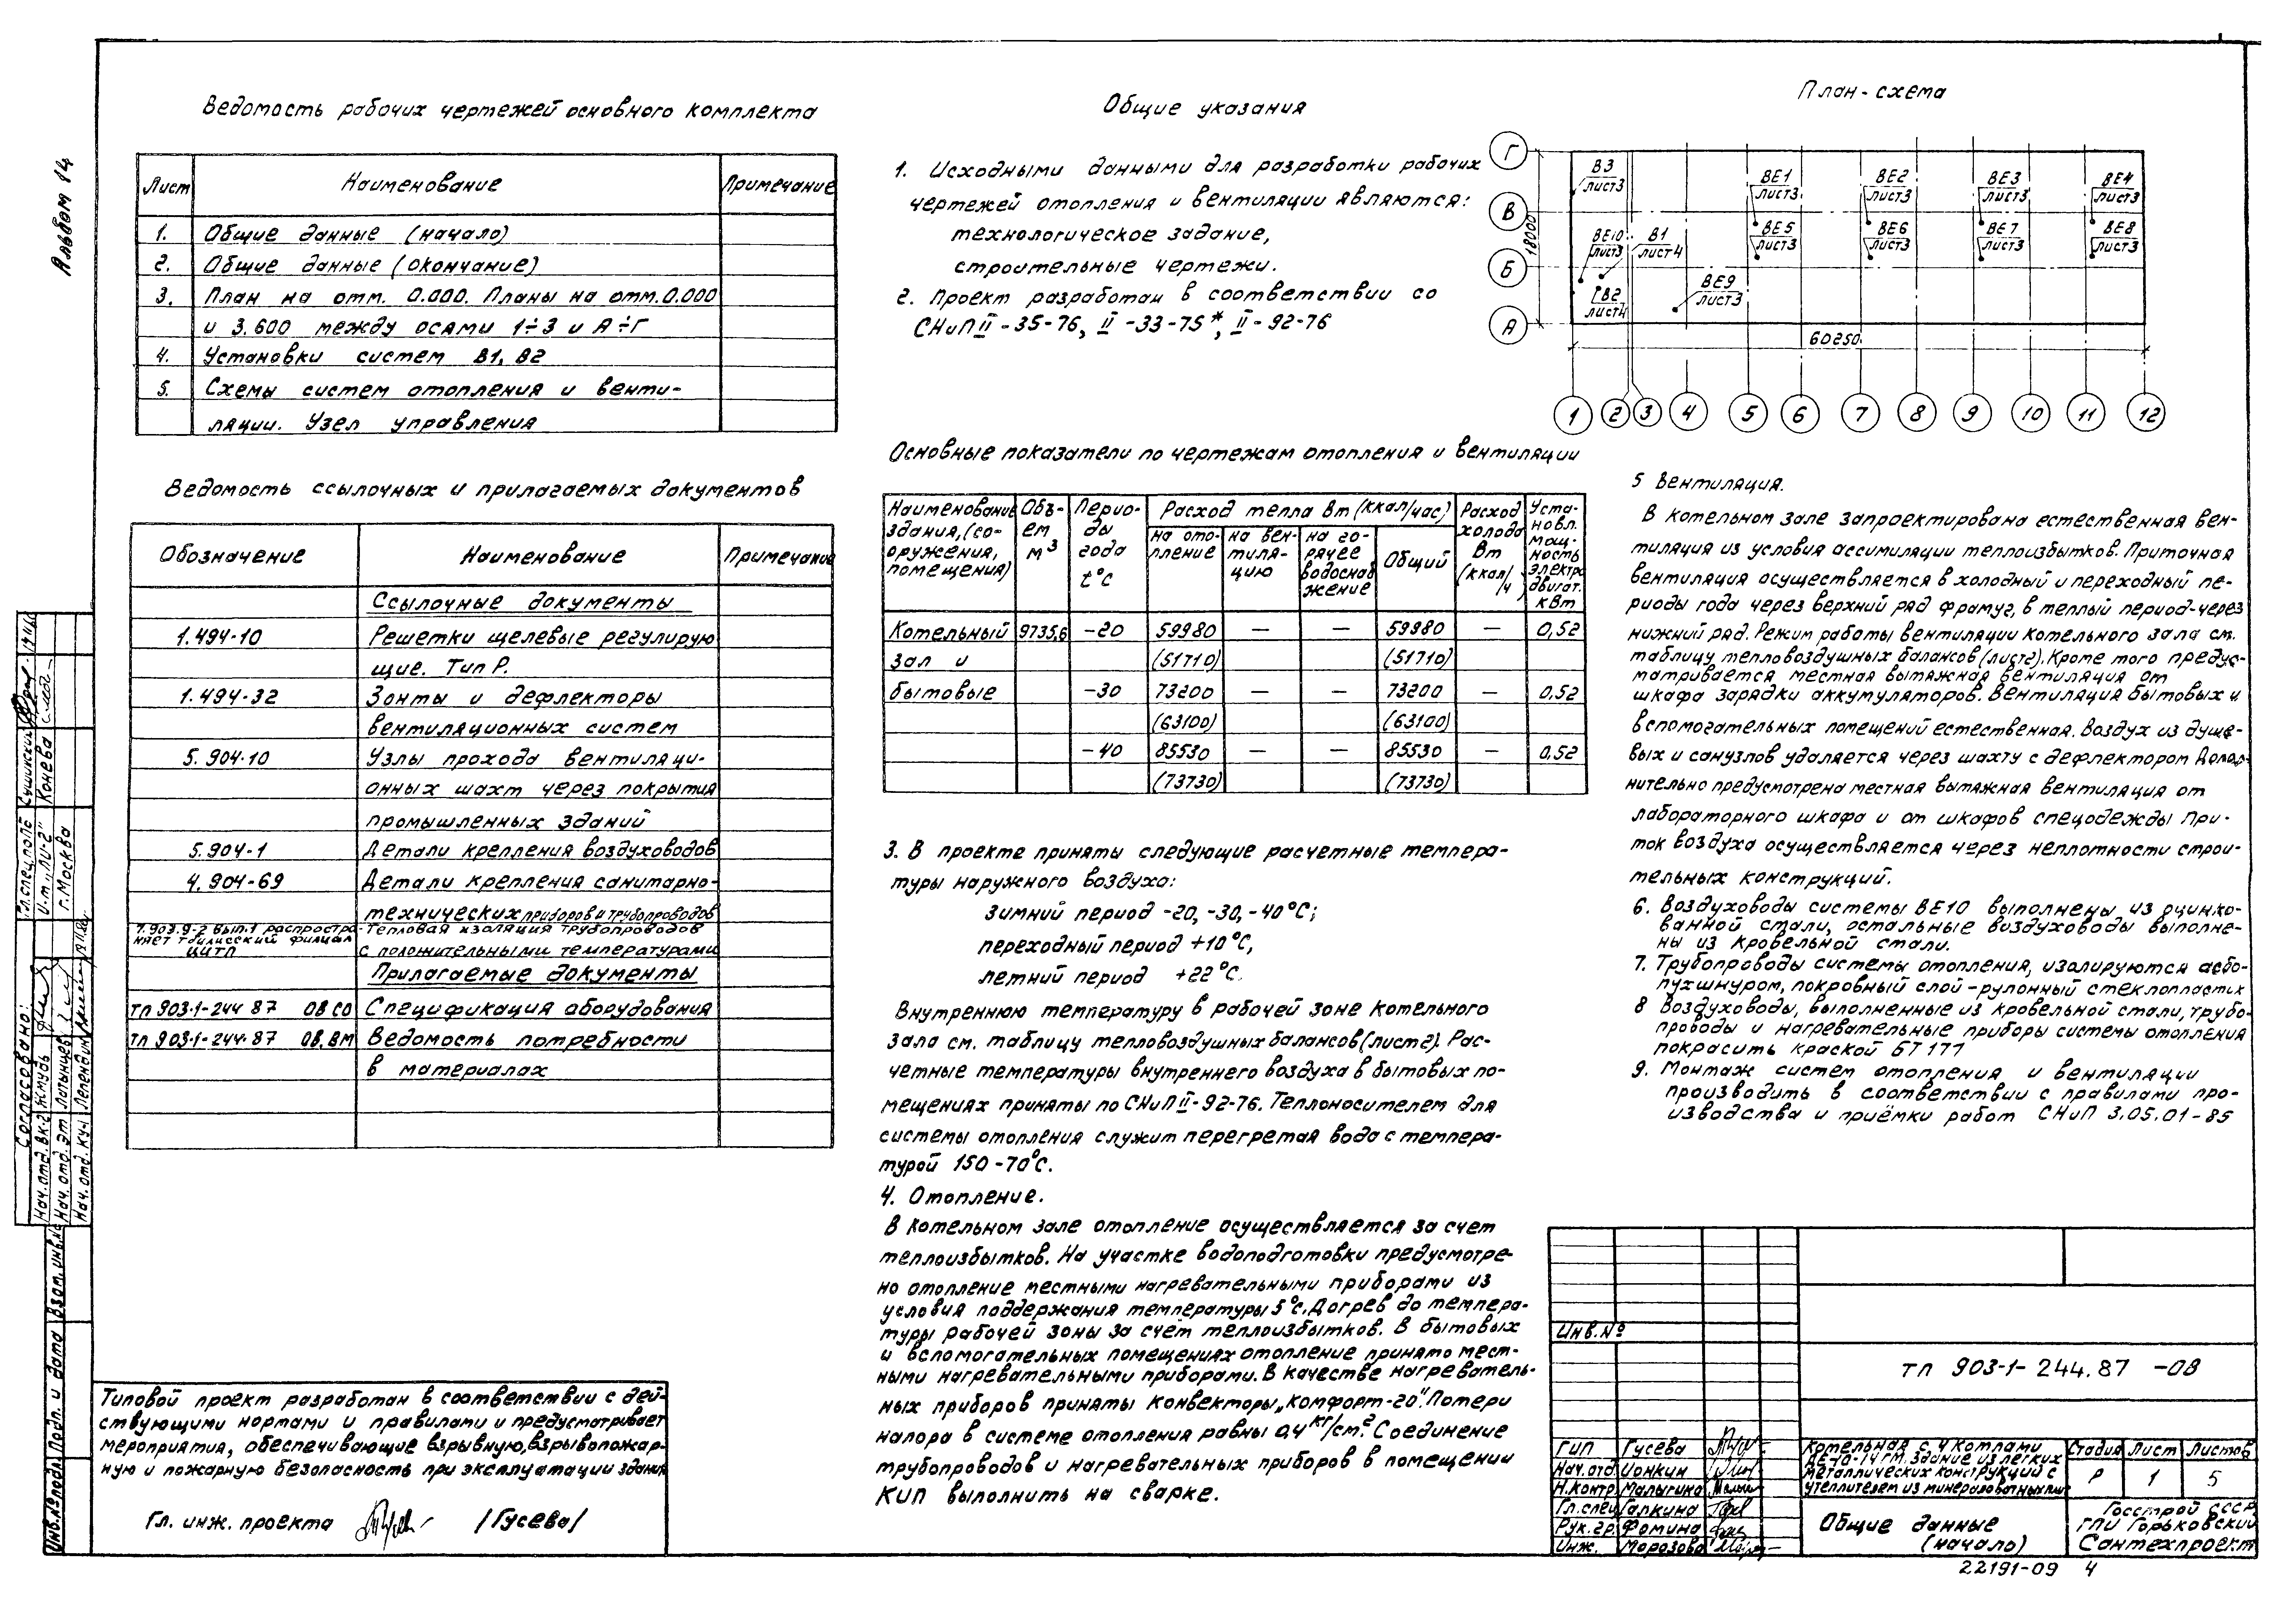 Альбом 14
Ведомость рабочих чертежей основного комплекта
Лист Наименование Примечание
1. Общие данные (начало)
2. Общие данные (окончание)
3. План на отм. 0.000. Планы на отм. 0.000
и 3.600 между осями 1÷3 и А÷Г
4. Установки систем В1, В2
5. Схемы систем отопления и венти-
ляции. Узел управления
Ведомость ссылочных и прилагаемых документов
Обозначение Наименование Примечание
Ссылочные документы
1.494-10 Решетки щелевые регулирую
щие. Тип Р.
1.494-32 Зонты и дефлекторы
вентиляционных систем
5.904-10 Узлы прохода вентиляци-
онных шахт через покрытия
промышленных зданий
5.904-1 Детали крепления воздуховодов
4.904-69 Детали крепления санитарно-
технических приборов и трубопроводов
7.903.9-2 вып.1 распростра- Тепловая изоляция трубопроводов
няет тбилисский филиал
ЦИТП с положительными температурами
Прилагаемые документы
ТП 903-1-244 87 08 СО Спецификация оборудования
ТП 903-1-244.87 08.ВМ Ведомость потребности
в материалах
Типовой проект разработан в соответствии с дей-
ствующими нормами и правилами и предусматривает
мероприятия, обеспечивающие взрывную, взрывопожар-
ную и пожарную безопасность при эксплуатации здания
Гл. инж. проекта /Гусева/
Общие указания
1. Исходными данными для разработки рабочих
чертежей отопления и вентиляции являются:
технологическое задание,
строительные чертежи.
2. Проект разработан в соответствии со
СНиП II-35-76, II-33-75*, II-92-76
Основные показатели по чертежам отопления и вентиляции
Наименование здания, (со-оружения, помещения) Объ-ем м³ Перио-ды года t°С Расход тепла Вт (ккал/час) Расход холода Вт (ккал/ч) Уста-новл. мощ-ность электро двигат. кВт
на ото-пление на вен-тиля-цию на го-рячее водоснаб жение Общий
Котельный 9735,6 -20 59980 — — 59980 — 0,52
зал и (51710) (51710)
бытовые -30 73200 — — 73200 — 0,52
(63100) (63100)
-40 85530 — — 85530 — 0,52
(73730) (73730)
3. В проекте приняты следующие расчетные темпера-
туры наружного воздуха:
зимний период -20, -30, -40°С;
переходный период +10°С,
летний период +22°С.
Внутреннюю температуру в рабочей зоне котельного
зала см. таблицу тепловоздушных балансов (лист 2). Рас-
четные температуры внутреннего воздуха в бытовых по-
мещениях приняты по СНиП II-92-76. Теплоносителем для
системы отопления служит перегретая вода с темпера-
турой 150-70°С.
4. Отопление.
В котельном зале отопление осуществляется за счет
теплоизбытков. На участке водоподготовки предусмотре-
но отопление местными нагревательными приборами из
условия поддержания температуры 5°С. Догрев до темпера-
туры рабочей зоны за счёт теплоизбытков. В бытовых
и вспомогательных помещениях отопление принято мест-
ными нагревательными приборами. В качестве нагреватель-
ных приборов приняты конвекторы „Комфорт-20". Потери
напора в системе отопления равны 0,4 кг/см². Соединение
трубопроводов и нагревательных приборов в помещении
КИП выполнить на сварке.
План-схема
Г В Б А
18000
В3 лист3
ВЕ1 лист3
ВЕ2 лист3
ВЕ3 лист3
ВЕ4 лист3
ВЕ10 лист3
В1 лист4
ВЕ5 лист3
ВЕ6 лист3
ВЕ7 лист3
ВЕ8 лист3
В2 лист4
ВЕ9 лист3
60250
1 2 3 4 5 6 7 8 9 10 11 12
5 Вентиляция.
В котельном зале запроектирована естественная вен-
тиляция из условия ассимиляции теплоизбытков. Приточная
вентиляция осуществляется в холодный и переходный пе-
риоды года через верхний ряд фрамуг, в теплый период-через
нижний ряд. Режим работы вентиляции котельного зала см.
таблицу тепловоздушных балансов (лист 2). Кроме того предус-
матривается местная вытяжная вентиляция от
шкафа зарядки аккумуляторов. Вентиляция бытовых и
вспомогательных помещений естественная. Воздух из душе-
вых и санузлов удаляется через шахту с дефлектором Допол-
нительно предусмотрена местная вытяжная вентиляция от
лабораторного шкафа и от шкафов спецодежды При-
ток воздуха осуществляется через неплотности строи-
тельных конструкций.
6. Воздуховоды системы ВЕ10 выполнены из оцинко-
ванной стали, остальные воздуховоды выполне-
ны из кровельной стали.
7. Трубопроводы системы отопления, изолируются асбо-
пухшнуром, покровный слой-рулонный стеклопластик
8 Воздуховоды, выполненные из кровельной стали, трубо-
проводы и нагревательные приборы системы отопления
покрасить краской БТ 177
9. Монтаж систем отопления и вентиляции
производить в соответствии с правилами про-
изводства и приёмки работ СНиП 3.05.01-85
Инв.№
ТП 903-1-244.87 -08
ГИП Гусева
Нач.отд Ионкин
Н.контр. Малыгина
Гл.спец Галкина
Рук.гр. Фомина
Инж. Морозова
Котельная с 4 котлами
ДЕ-10-14ГМ. Здание из легких
металлических конструкций с
утеплителем из минераловатных плит
Стадия Лист Листов
Р 1 5
Общие данные
(начало)
Госстрой СССР
ГПИ Горьковский
Сантехпроект
22191-09 4
Согласовано:
Нач. отд. ВК-2 Жмудь
Нач. отд. ЭТ Латынцев
Нач. отд. КУЧ
Гл. спец. ПОЛЕ
и-т „ЛИ-2" Конева
г. Москва
Инв.№подл. Подп. и дата Взам. инв.№